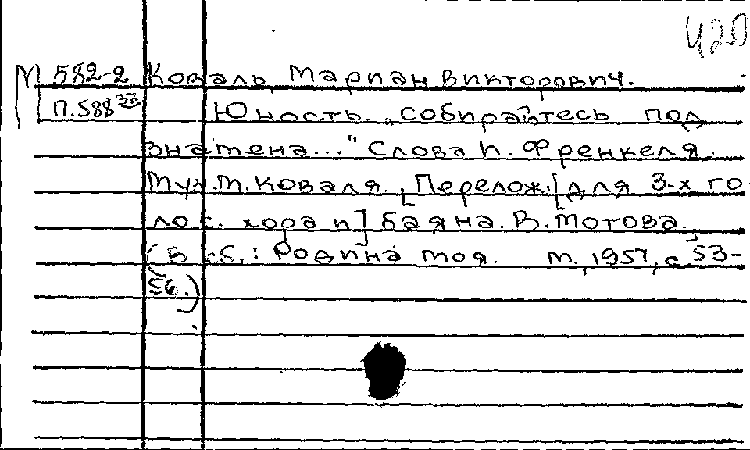 420
М 582-2 Коваль, Мариан Викторович.
П.588 Юность. „Собирайтесь под
знамена..." Слова И. Френкеля.
Муз. М. Коваля. [Перелож.] для 3-х го
лос. хора и] баяна. В. Мотова.
(В сб.: Родина моя. М., 1957, с. 53-
56.)